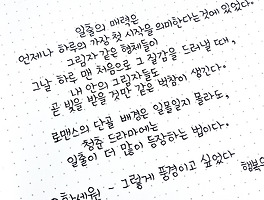 일출의 매력은
언제나 하루의 가장 첫 시작을 의미한다는것에 있었다.
그림자 같은 형체들이
그날 하루 맨 처음으로 그 질감을 드러낼 때,
내 안의 그림자들도
곧 빛을 받을 것만 같은 벅참이 생긴다.
로맨스의 단골 배경은 일몰일지 몰라도,
청춘 드라마에는
일출이 더 많이 등장하는 법이다.
- 그렇게 풍경이고 싶었다
행복